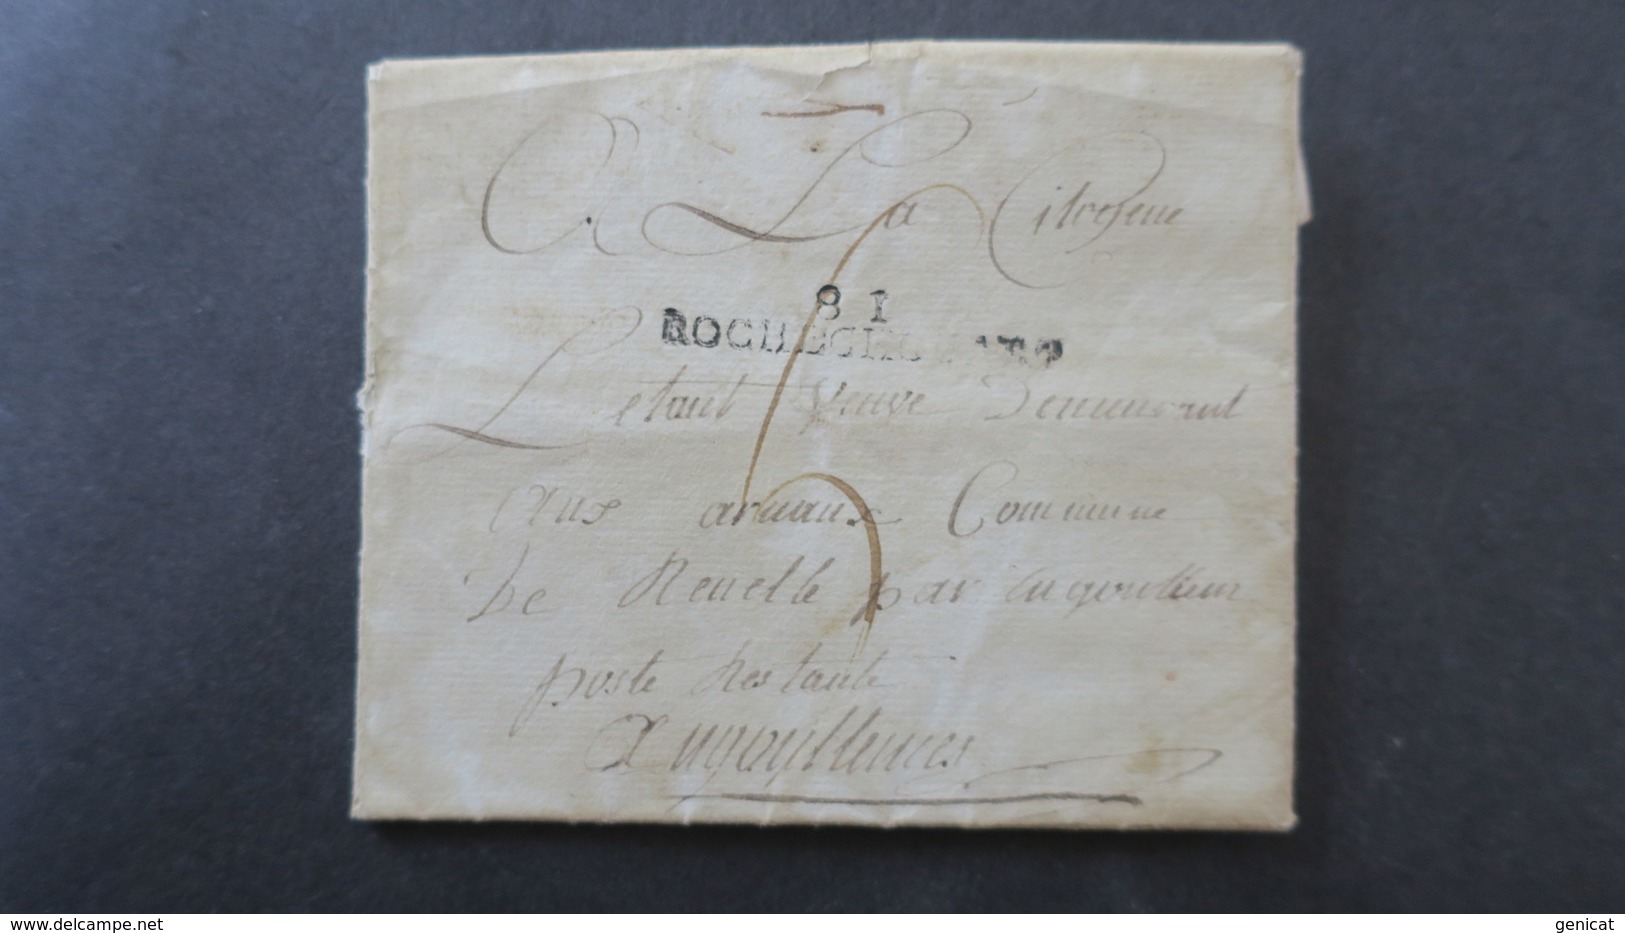 A La Citoyene
81
ROCHECHOUART
Letant Veuve Demeurant
Aux arnaux Commune
De Reuelle par angoulleme
poste Restante
Angoullemes
www.delcampe.net
genicat